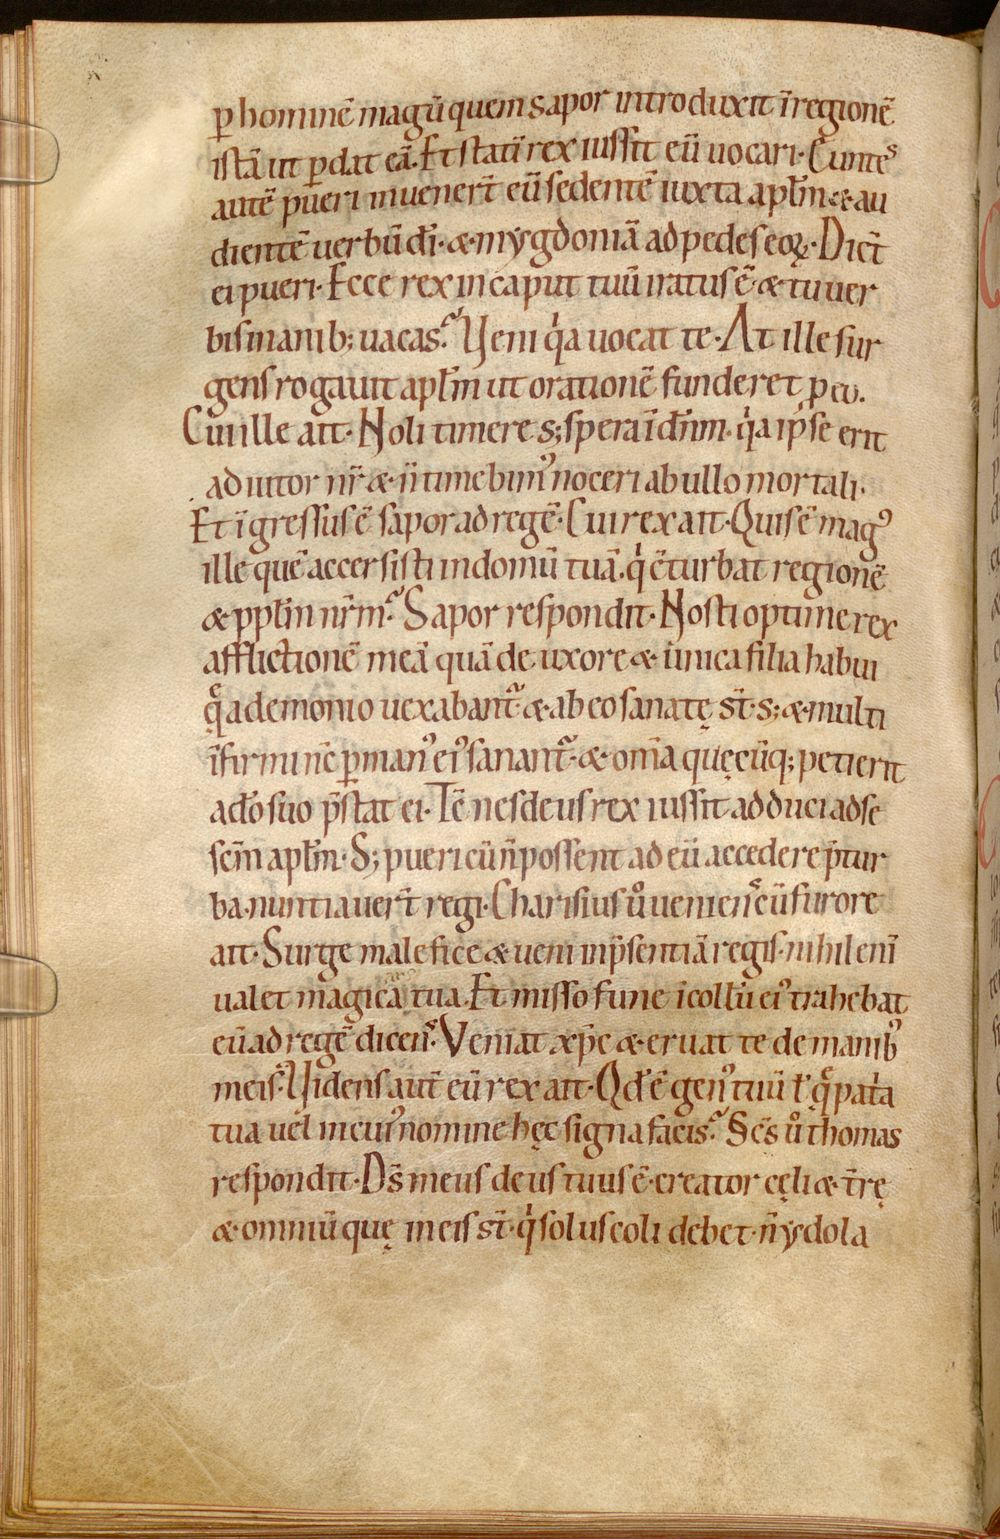 p̄ hominē magū quem sapor introduxit ī regionē
istā ut p̄dat eā. Et statī rex iussit eū uocari. Cuntes
autē pueri inuener̄t eū sedentē iuxta apl̄m & au
dientē uerbū dī. & mygdoniā ad pedes eoꝝ. Dict̄
ei pueri. Ecce rex in caput tuū iratus ē. & tu uer
bis manib; uacas? Veni qa uocat te. At ille sur
gens rogauit apl̄m ut orationē funderet p̄ eo.
Cui ille ait. Noli timere s; spera ī dn̄m. qa ipse erit
adiutor nr̄ & n̄ timebimꝰ noceri ab ullo mortali.
Et īgressus ē sapor ad regē. Cui rex ait. Quis ē magꝰ
ille quē accersisti in domū tuā. qi cturbat regionē
& ppl̄m nr̄m? Sapor respondit. Nosti optime rex
afflictionē meā quā de uxore & unica filia habui
q̄ a demonio uexabant̄. & ab eo sanatę st̄. s; & multi
īfirmi nc̄ p̄ manꝰ eiꝰ sanant̄. & om̄a quęcūq; petierit
a dō suo p̄stat ei. Tc̄ nesdeus rex iussit adduci ad se
sc̄m apl̄m. S; pueri cū n̄ possent ad eū accedere p̄ tur
ba. nuntiauer̄t regi. Charisius ůo ueniens cū furore
ait. Surge malefice & ueni in p̄sentiā regis. nihil enī
ualet magica ars tua. Et misso fune ī collū eiꝰ trahebat
eū ad regē dicens. Veniat xpc & eruat te de manibꝰ
meis. Videns aut̄ eū rex ait. Qd ē genꝰ tuū ł q̄ patͥa
tua uel in cuiꝰ nomine hęc signa facis? Sc̄s ůo thomas
respondit. Dn̄s meus deus tuus ē. creator cęli & tr̄ę
& omniū quę in eis st̄. qi solus coli debet. n̄ ydola